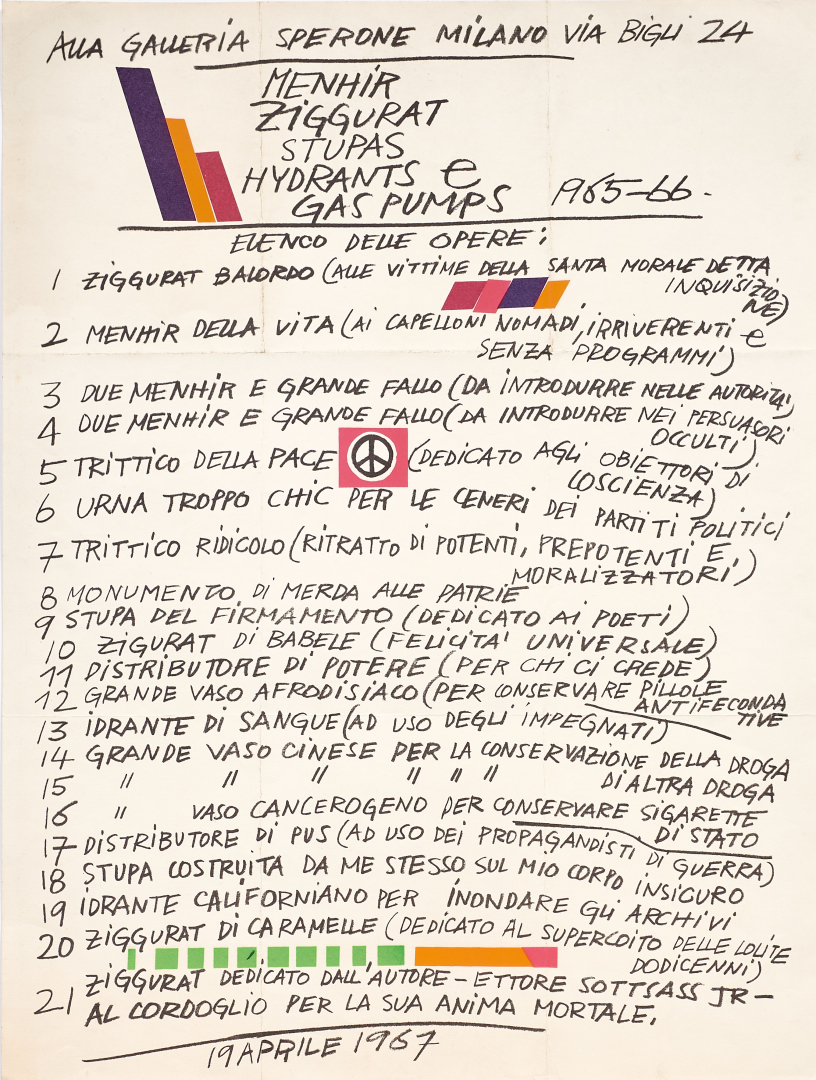 ALLA GALLERIA SPERONE MILANO VIA BIGLI 24
MENHIR
ZIGGURAT
STUPAS
HYDRANTS e
GAS PUMPS 1965-66-
ELENCO DELLE OPERE:
1 ZIGGURAT BALORDO (ALLE VITTIME DELLA SANTA MORALE DETTA
INQUISIZIO
NE)
2 MENHIR DELLA VITA (AI CAPELLONI NOMADI, IRRIVERENTI e
SENZA PROGRAMMI)
3 DUE MENHIR E GRANDE FALLO (DA INTRODURRE NELLE AUTORITA')
4 DUE MENHIR E GRANDE FALLO (DA INTRODURRE NEI PERSUASORI
OCCULTI)
5 TRITTICO DELLA PACE (DEDICATO AGLI OBIETTORI DI
COSCIENZA)
6 URNA TROPPO CHIC PER LE CENERI DEI PARTITI POLITICI
7 TRITTICO RIDICOLO (RITRATTO DI POTENTI, PREPOTENTI E
MORALIZZATORI)
8 MONUMENTO DI MERDA ALLE PATRIE
9 STUPA DEL FIRMAMENTO (DEDICATO AI POETI)
10 ZIGURAT DI BABELE (FELICITA' UNIVERSALE)
11 DISTRIBUTORE DI POTERE (PER CHI CI CREDE)
12 GRANDE VASO AFRODISIACO (PER CONSERVARE PILLOLE
ANTIFECONDA
TIVE
13 IDRANTE DI SANGUE (AD USO DEGLI IMPEGNATI)
14 GRANDE VASO CINESE PER LA CONSERVAZIONE DELLA DROGA
15 " " " " " " DI ALTRA DROGA
16 " VASO CANCEROGENO PER CONSERVARE SIGARETTE
DI STATO
17 DISTRIBUTORE DI PUS (AD USO DEI PROPAGANDISTI DI GUERRA)
18 STUPA COSTRUITA DA ME STESSO SUL MIO CORPO INSICURO
19 IDRANTE CALIFORNIANO PER INONDARE GLI ARCHIVI
20 ZIGGURAT DI CARAMELLE (DEDICATO AL SUPERCOITO DELLE LOLITE
DODICENNI)
21 ZIGGURAT DEDICATO DALL'AUTORE - ETTORE SOTTSASS JR -
AL CORDOGLIO PER LA SUA ANIMA MORTALE.
19 APRILE 1967